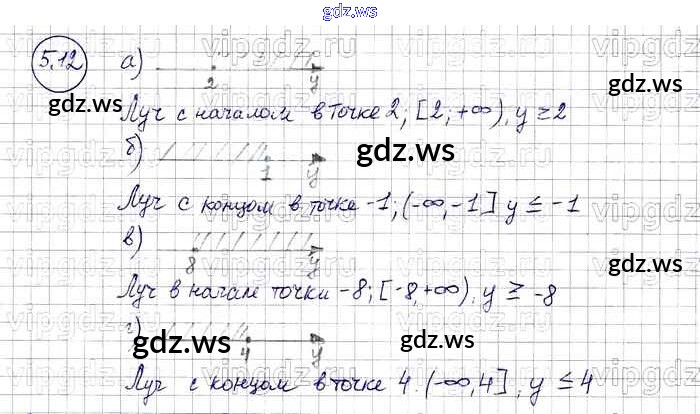 gdz.ws
5.12 а) 2 y
gdz.ws
gdz.ws
Луч с началом в точке 2; [2; +∞), y ≥ 2
б) 1 y
gdz.ws
Луч с концом в точке -1; (-∞, -1] y ≤ -1
в) 8 y
gdz.ws
Луч в начале точки -8; [-8, +∞), y ≥ -8
г) 4 y
gdz.ws
gdz.ws
Луч с концом в точке 4. (-∞, 4], y ≤ 4